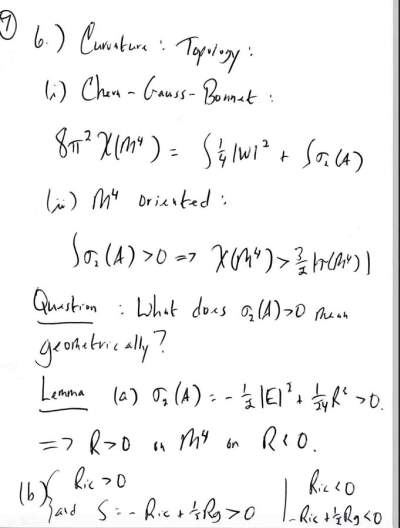 9
6.) Curvature : Topology :
(i) Chern-Gauss-Bonnet :
8π² χ(M⁴) = ∫ 1/4 |W|² + ∫ σ₂(A)
(ii) M⁴ oriented :
∫ σ₂(A) > 0 => χ(M⁴) > 3/2 |τ(M⁴)|
Question : What does σ₂(A) > 0 mean
geometrically?
Lemma (a) σ₂(A) = -1/2 |E|² + 1/24 R² > 0.
=> R > 0 on M⁴ or R < 0.
(b) { Ric > 0 | Ric < 0
and S = -Ric + 1/2 Rg > 0 | -Ric + 1/2 Rg < 0